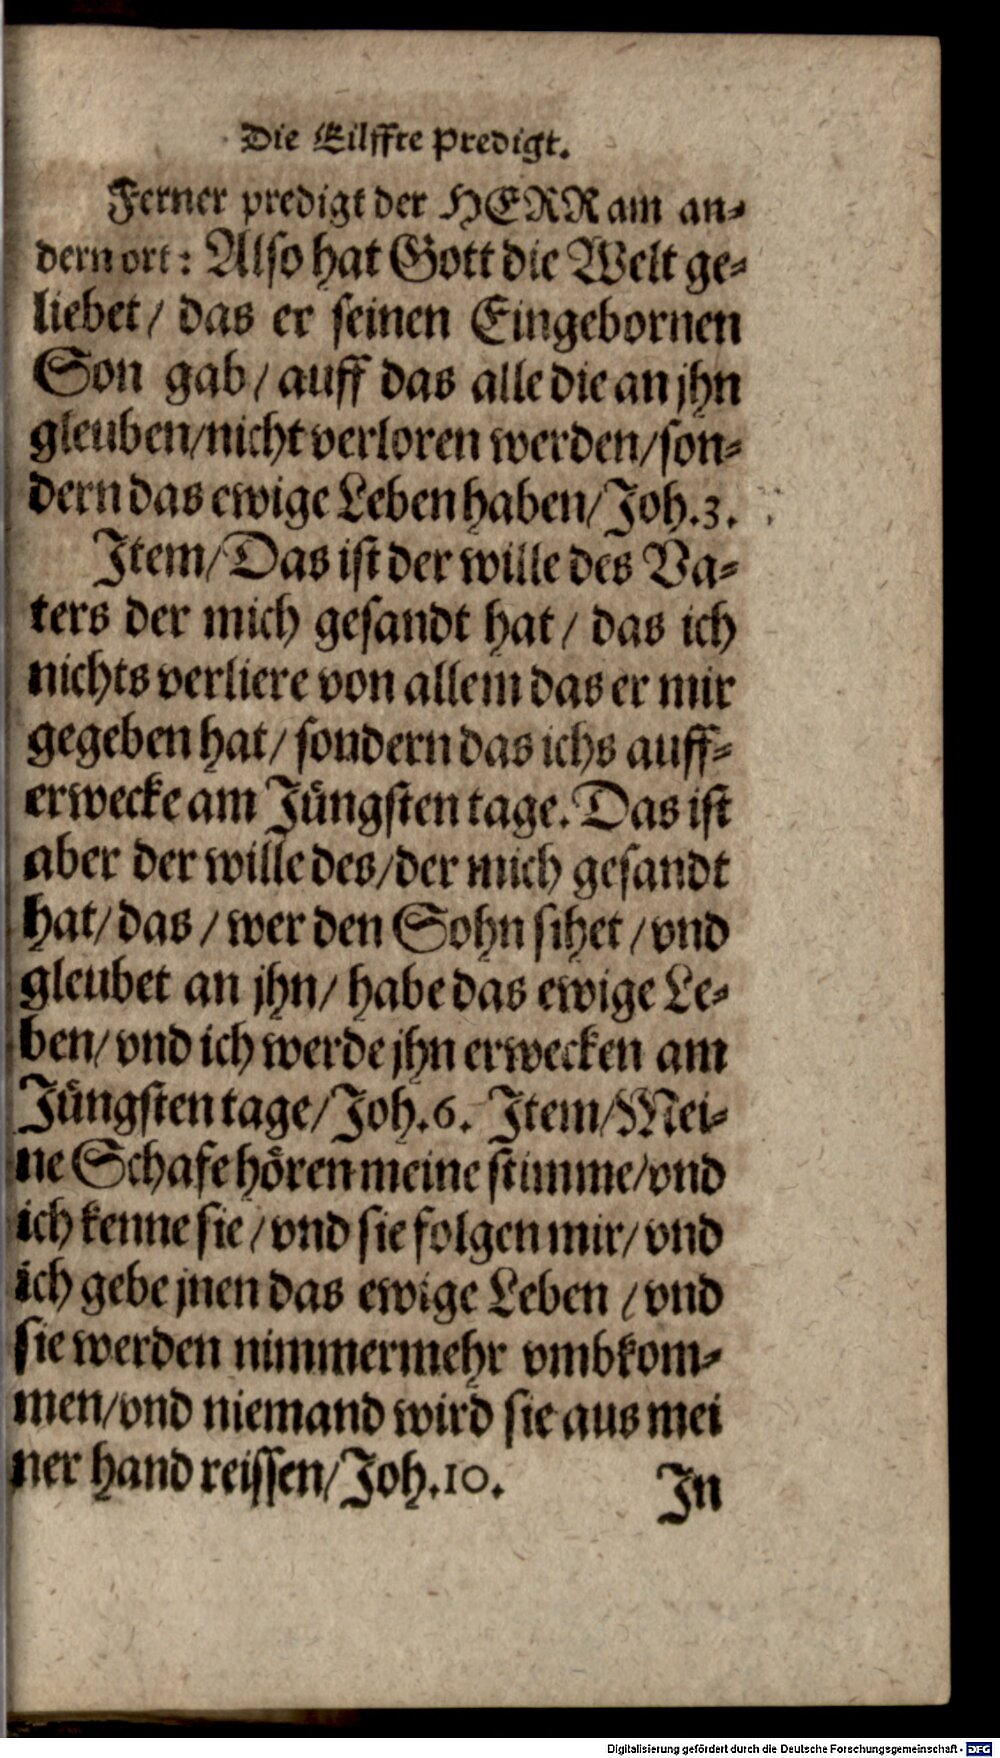 Die Eilffte Predigt.
Ferner predigt der HERR am an⸗
dern ort: Also hat Gott die Welt ge⸗
liebet/ das er seinen Eingebornen
Son gab/ auff das alle die an jhn
gleuben/nicht verloren werden/son⸗
dern das ewige Leben haben/Joh.3.
Item/Das ist der wille des Va⸗
ters der mich gesandt hat/ das ich
nichts verliere von allem das er mir
gegeben hat/ sondern das ichs auff⸗
erwecke am Jüngsten tage. Das ist
aber der wille des/der mich gesandt
hat/das/wer den Sohn sihet/vnd
gleubet an jhn/ habe das ewige Le⸗
ben/vnd ich werde jhn erwecken am
Jüngsten tage/Joh.6. Item/Mei⸗
ne Schafe hören meine stimme/vnd
ich kenne sie/vnd sie folgen mir/vnd
ich gebe jnen das ewige Leben/vnd
sie werden nimmermehr vmbkom⸗
men/vnd niemand wird sie aus mei
ner hand reissen/Joh.10.
In
Digitalisierung gefördert durch die Deutsche Forschungsgemeinschaft - DFG